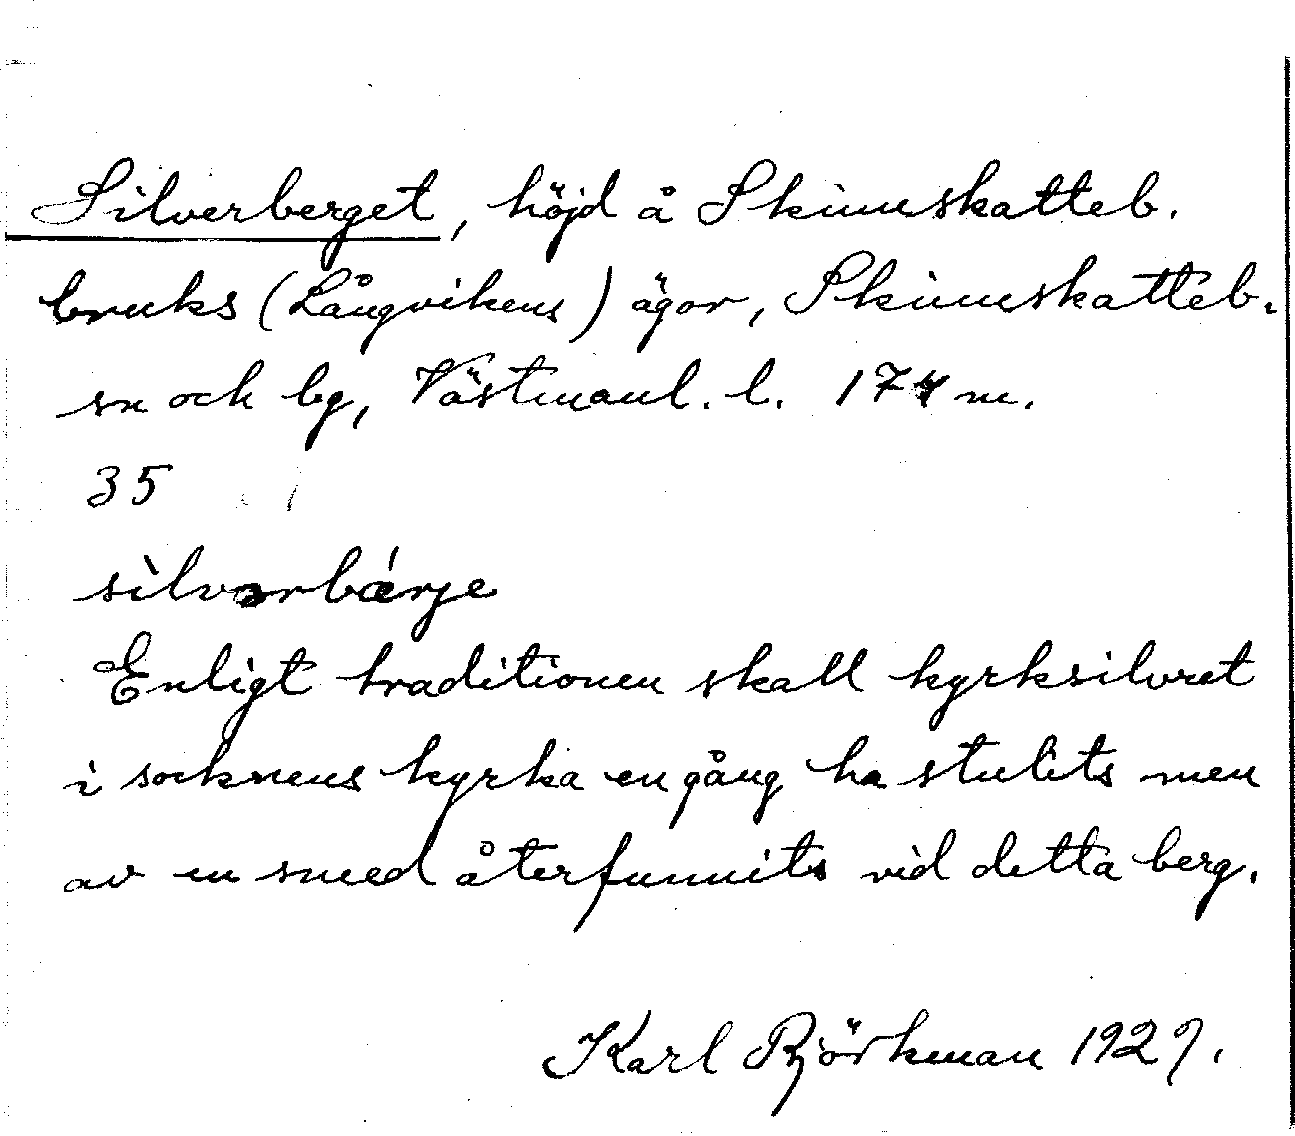 Silverberget, höjd å Skinnskatteb.
bruks (Långvikens) ägor, Skinnskatteb.
sn och bg, Västmanl. l. 174 m.
35
sìlvərbǽrje
Enligt traditionen skall kyrksilvret
i socknens kyrka en gång ha stulits men
av en smed återfunnits vid detta berg.
Karl Björkman 1929.